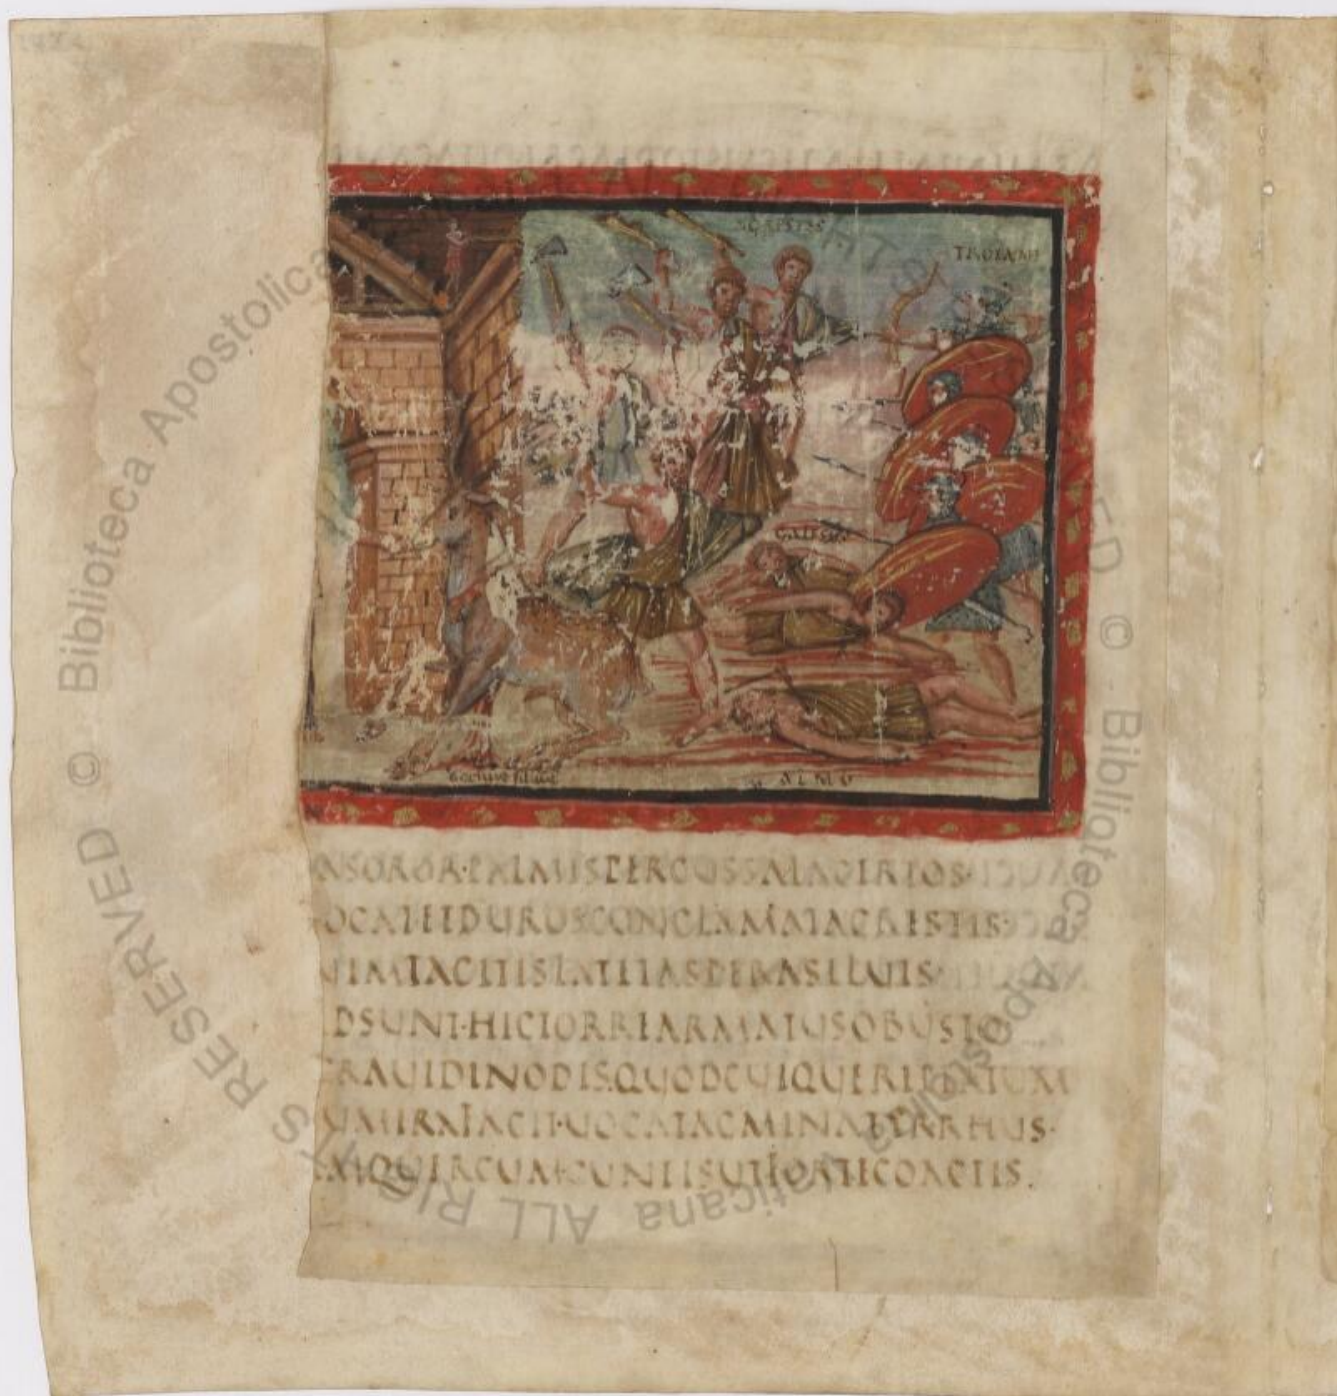 AGRESTES
TROIANI
GALESUS
ALMO
ASOROR·PALMISPERCUSSALACERTOS·
OCATETDUROSCONCLAMATAGRESTIS·
NIMTACITISLATETASPERASILUIS·
DSUNT·HICTORREARMATUSOBUSTO
GRAUIDINODIS·QUODCUIQUEREPERTUM
UMIRAFACIT·UOCATAGMINATYRRHUS·
AMQUERCUMCUNEISUTFORTECOACTIS·
© Biblioteca Apostolica Vaticana ALL RIGHTS RESERVED © Biblioteca Apostolica